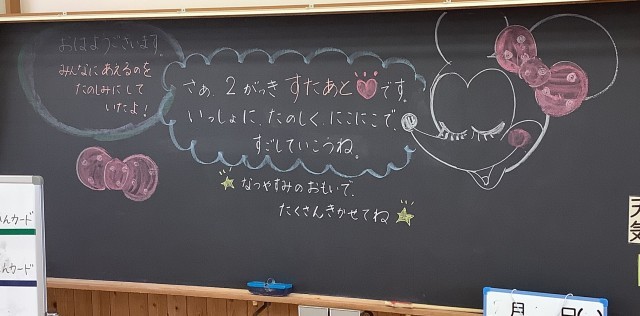 おはようございます。
みんなにあえるのを
たのしみにして
いたよ!
さぁ、2がっき すたあと です。
いっしょに、たのしく、にこにこで、
すごしていこうね。
なつやすみのおもいで、
たくさんきかせてね
んカード
んカード
天
気
月 日( )